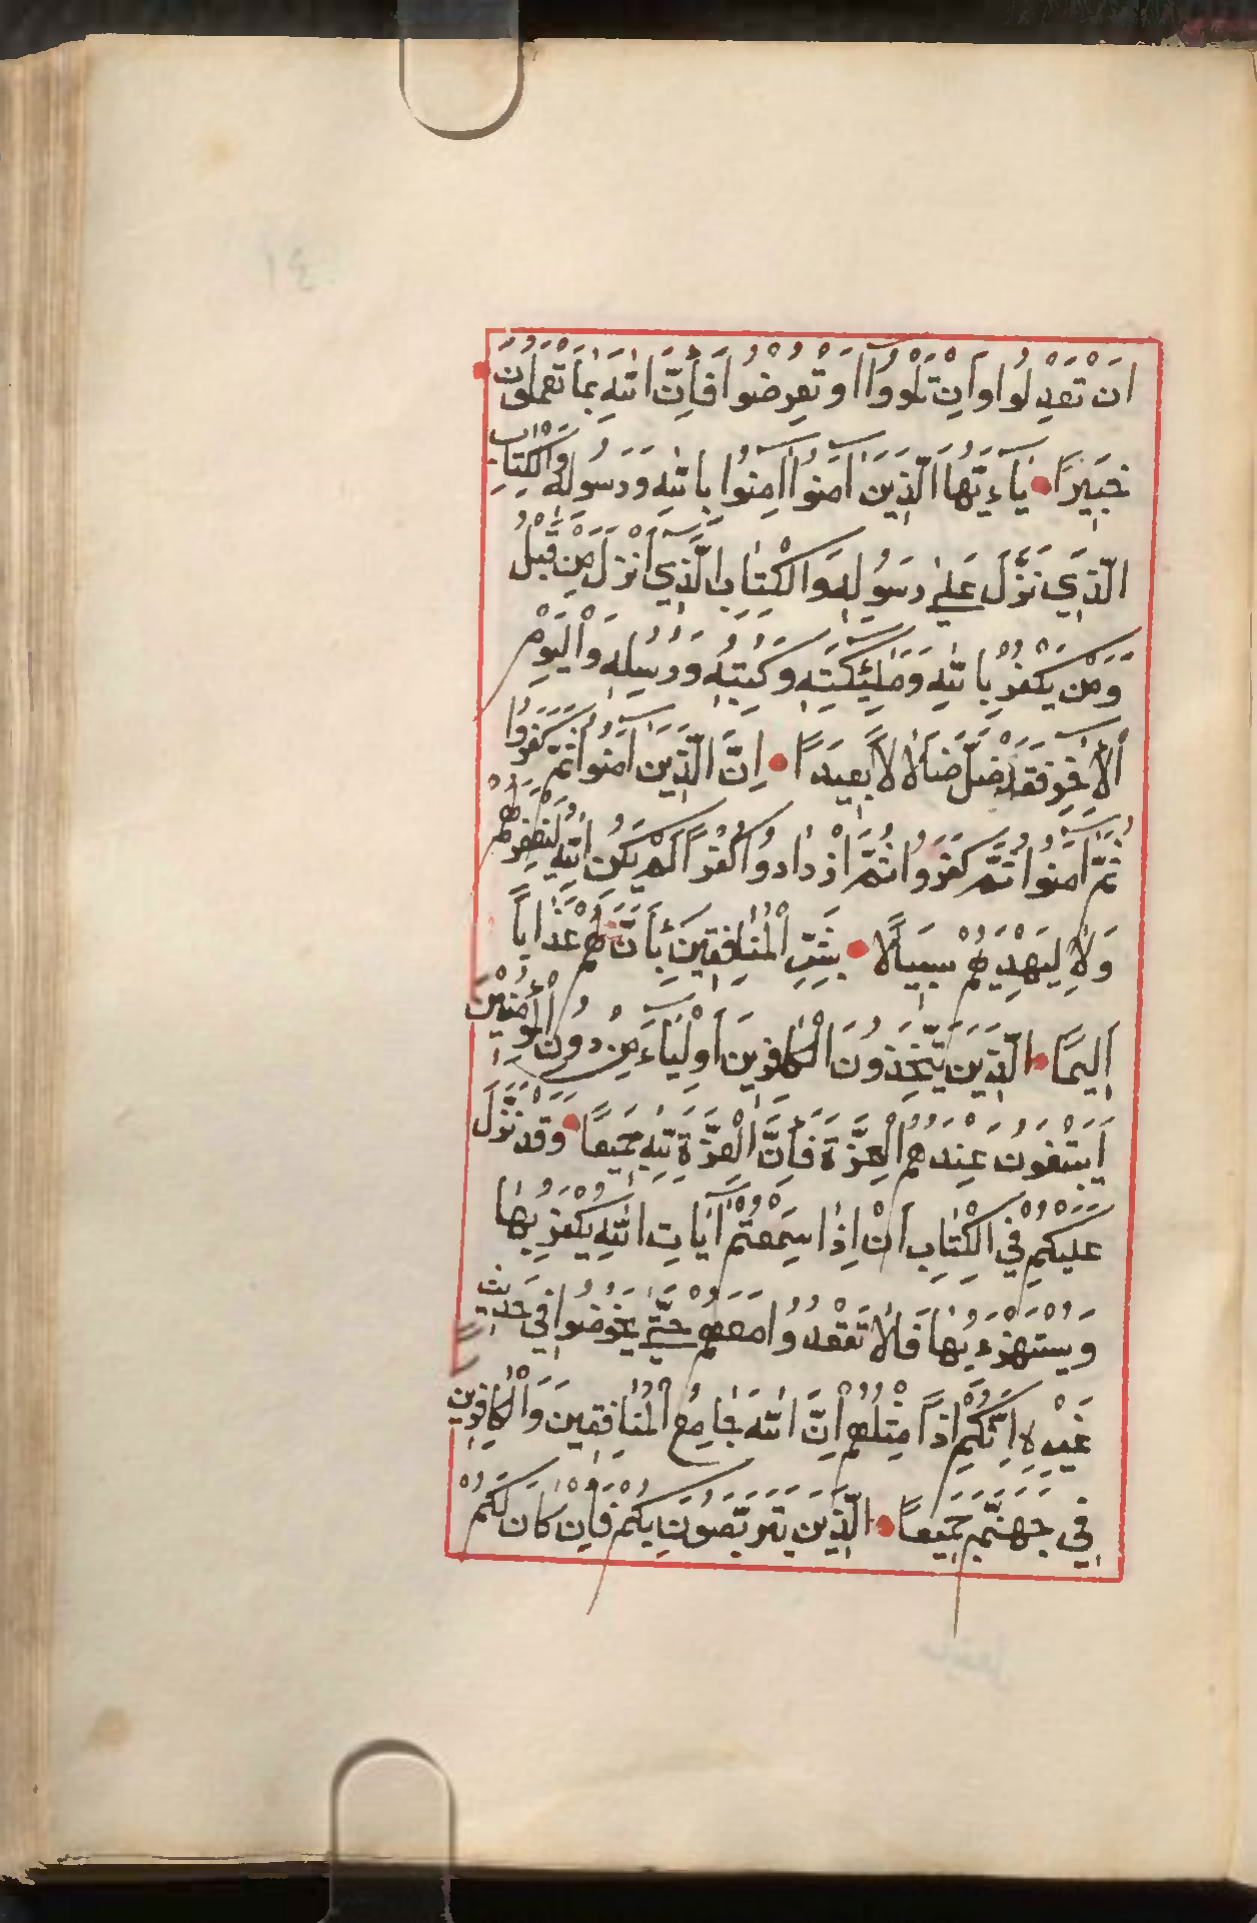 اَنْ تَعْدِلُوا وَاِنْ تَلْوُوآ اَوْ تُعْرِضُوا فَاِنَّ اللّٰهَ بِمَا تَعْمَلُونَ
خَبِيرًا يَآءَيُّهَا الَّذِينَ اٰمَنُوآ اٰمِنُوا بِاللّٰهِ وَرَسُولِهِ وَالْكِتَابِ
الَّذِي نَزَّلَ عَلٰى رَسُولِهِ وَالْكِتَابِ الَّذِي اَنْزَلَ مِنْ قَبْلُ
وَمَنْ يَكْفُرْ بِاللّٰهِ وَمَلٰئِكَتِهِ وَكُتُبِهِ وَرُسُلِهِ وَالْيَوْمِ
الْاٰخِرِ فَقَدْ ضَلَّ ضَلَالًا بَعِيدًا اِنَّ الَّذِينَ اٰمَنُوا ثُمَّ كَفَرُوا
ثُمَّ اٰمَنُوا ثُمَّ كَفَرُوا ثُمَّ ازْدَادُوا كُفْرًا لَمْ يَكُنِ اللّٰهُ لِيَغْفِرَ لَهُمْ
وَلَا لِيَهْدِيَهُمْ سَبِيلًا بَشِّرِ الْمُنَافِقِينَ بِأَنَّ لَهُمْ عَذَابًا
اَلِيمًا الَّذِينَ يَتَّخِذُونَ الْكَافِرِينَ اَوْلِيَآءَ مِنْ دُونِ الْمُؤْمِنِينَ
اَيَبْتَغُونَ عِنْدَهُمُ الْعِزَّةَ فَاِنَّ الْعِزَّةَ لِلّٰهِ جَمِيعًا وَقَدْ نَزَّلَ
عَلَيْكُمْ فِي الْكِتَابِ اَنْ اِذَا سَمِعْتُمْ اٰيَاتِ اللّٰهِ يُكْفَرُ بِهَا
وَيُسْتَهْزَءُ بِهَا فَلَا تَقْعُدُوا مَعَهُمْ حَتّٰى يَخُوضُوا فِي حَدِيثٍ
غَيْرِهِ اِنَّكُمْ اِذًا مِثْلُهُمْ اِنَّ اللّٰهَ جَامِعُ الْمُنَافِقِينَ وَالْكَافِرِينَ
فِي جَهَنَّمَ جَمِيعًا الَّذِينَ يَتَرَبَّصُونَ بِكُمْ فَاِنْ كَانَ لَكُمْ